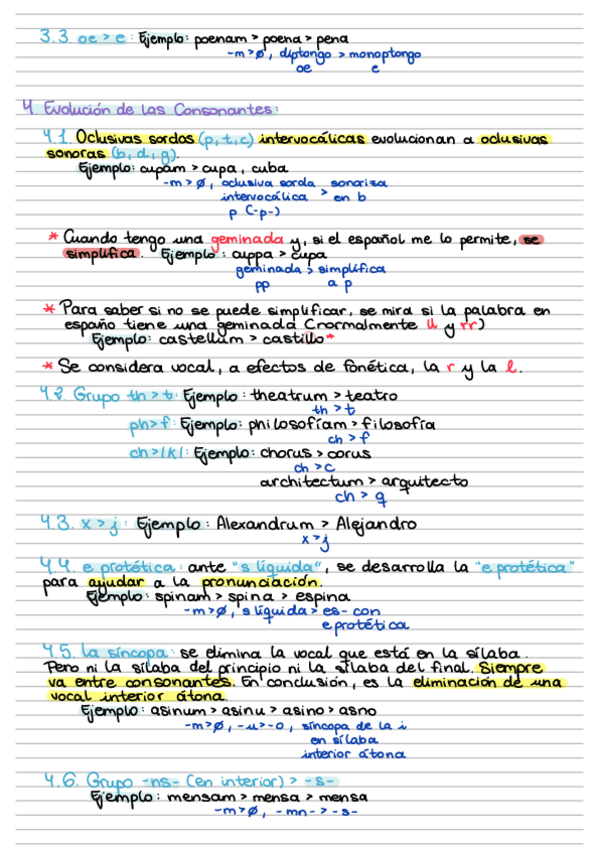 3.3. oe > e : Ejemplo: poenam > poena > pena
-m > ø, diptongo > monoptongo
oe e
4. Evolución de las Consonantes:
4.1. Oclusivas sordas (p, t, c) intervocálicas evolucionan a oclusivas
sonoras (b, d, g).
Ejemplo: cupam > cupa, cuba
-m > ø, oclusiva sorda sonoriza
intervocálica > en b
p (-p-)
* Cuando tengo una geminada y, si el español me lo permite, se
simplifica. Ejemplo: cuppa > cupa
geminada > simplifica
pp a p
* Para saber si no se puede simplificar, se mira si la palabra en
españo tiene una geminada (normalmente ll y rr)
Ejemplo: castellum > castillo*
* Se considera vocal, a efectos de fonética, la r y la l.
4.2. Grupo th > t: Ejemplo: theatrum > teatro
th > t
ph > f: Ejemplo: philosofíam > filosofía
ch > f
ch > /k/: Ejemplo: chorus > corus
ch > c
architectum > arquitecto
ch > q
4.3. x > j: Ejemplo: Alexandrum > Alejandro
x > j
4.4. e protética: ante "s líquida", se desarrolla la "e protética"
para ayudar a la pronunciación.
Ejemplo: spinam > spina > espina
-m > ø, s líquida > es- con
e protética
4.5. La síncopa: se elimina la vocal que está en la sílaba.
Pero ni la sílaba del principio ni la sílaba del final. Siempre
va entre consonantes. En conclusión, es la eliminación de una
vocal interior átona.
Ejemplo: asinum > asinu > asino > asno
-m > ø, -u > -o, síncopa de la i
en sílaba
interior átona
4.6. Grupo -ns- (en interior) > -s-
Ejemplo: mensam > mensa > mensa
-m > ø, -mn- > -s-